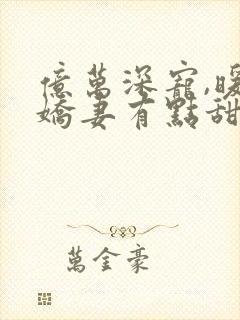 億萬深寵,暖
嬌妻有點甜
萬金豪